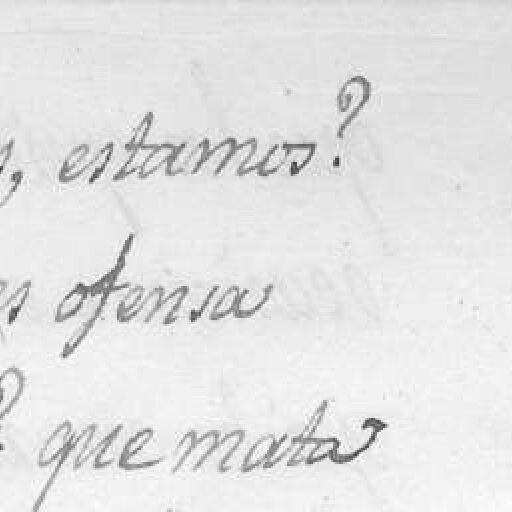 s, estamos?
es ofensa
? que mata